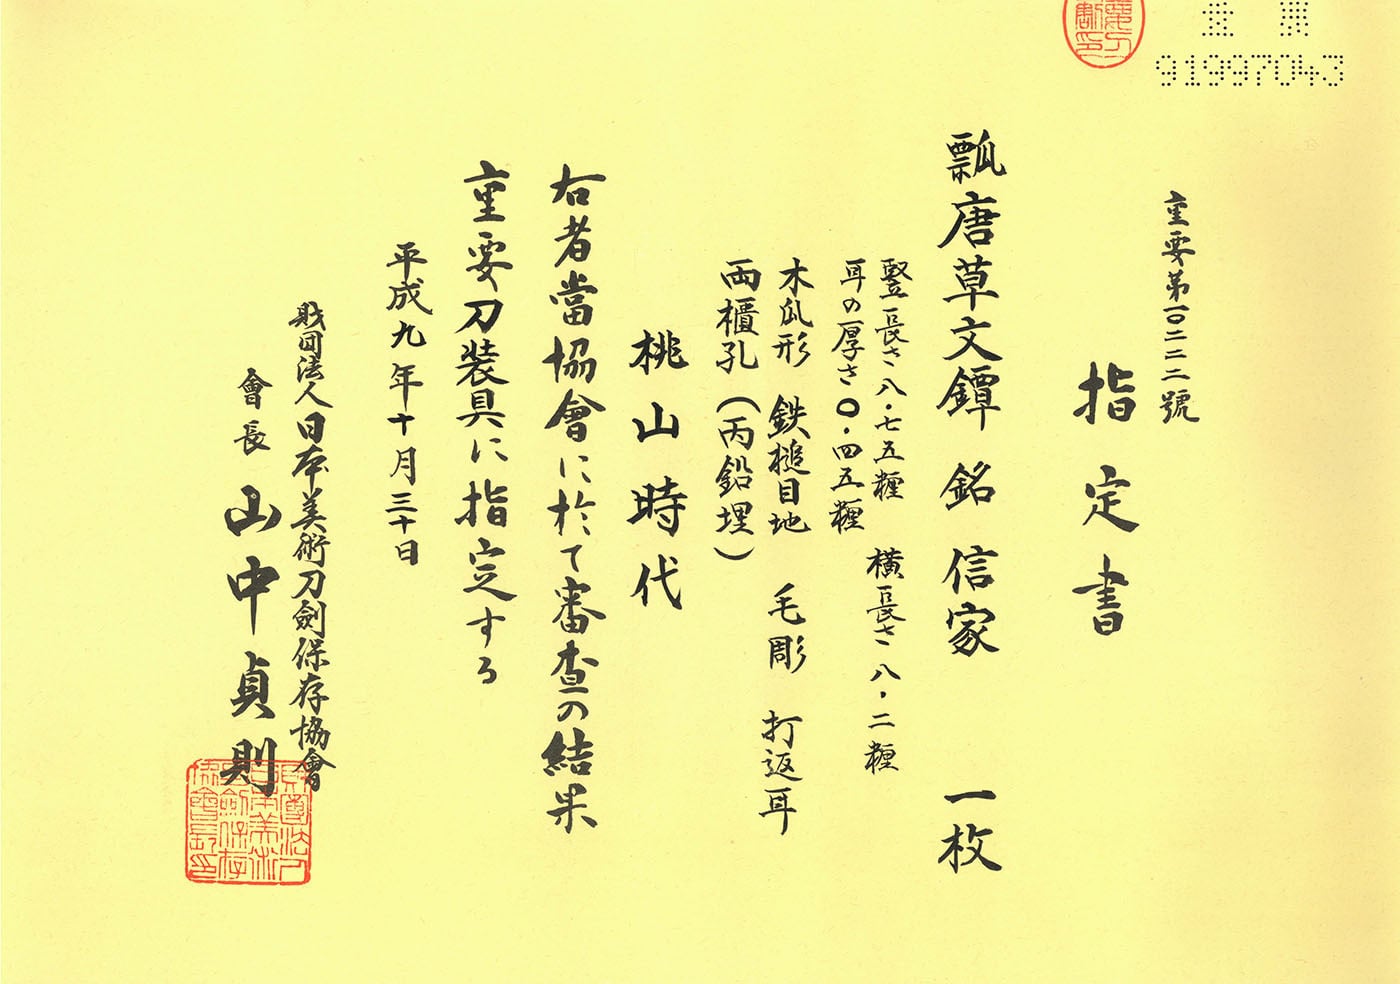 91997043
重要第一〇二二二號
指定書
瓢唐草文鐔 銘 信家 一枚
竪長さ八・七五糎 横長さ八・二糎
耳の厚さ〇・四五糎
木瓜形 鉄槌目地 毛彫 打返耳
両櫃孔(丙鉛埋)
桃山時代
右者當協會に於て審査の結果
重要刀装具に指定する
平成九年十月三十日
財団法人日本美術刀劍保存協會
會長 山中貞則